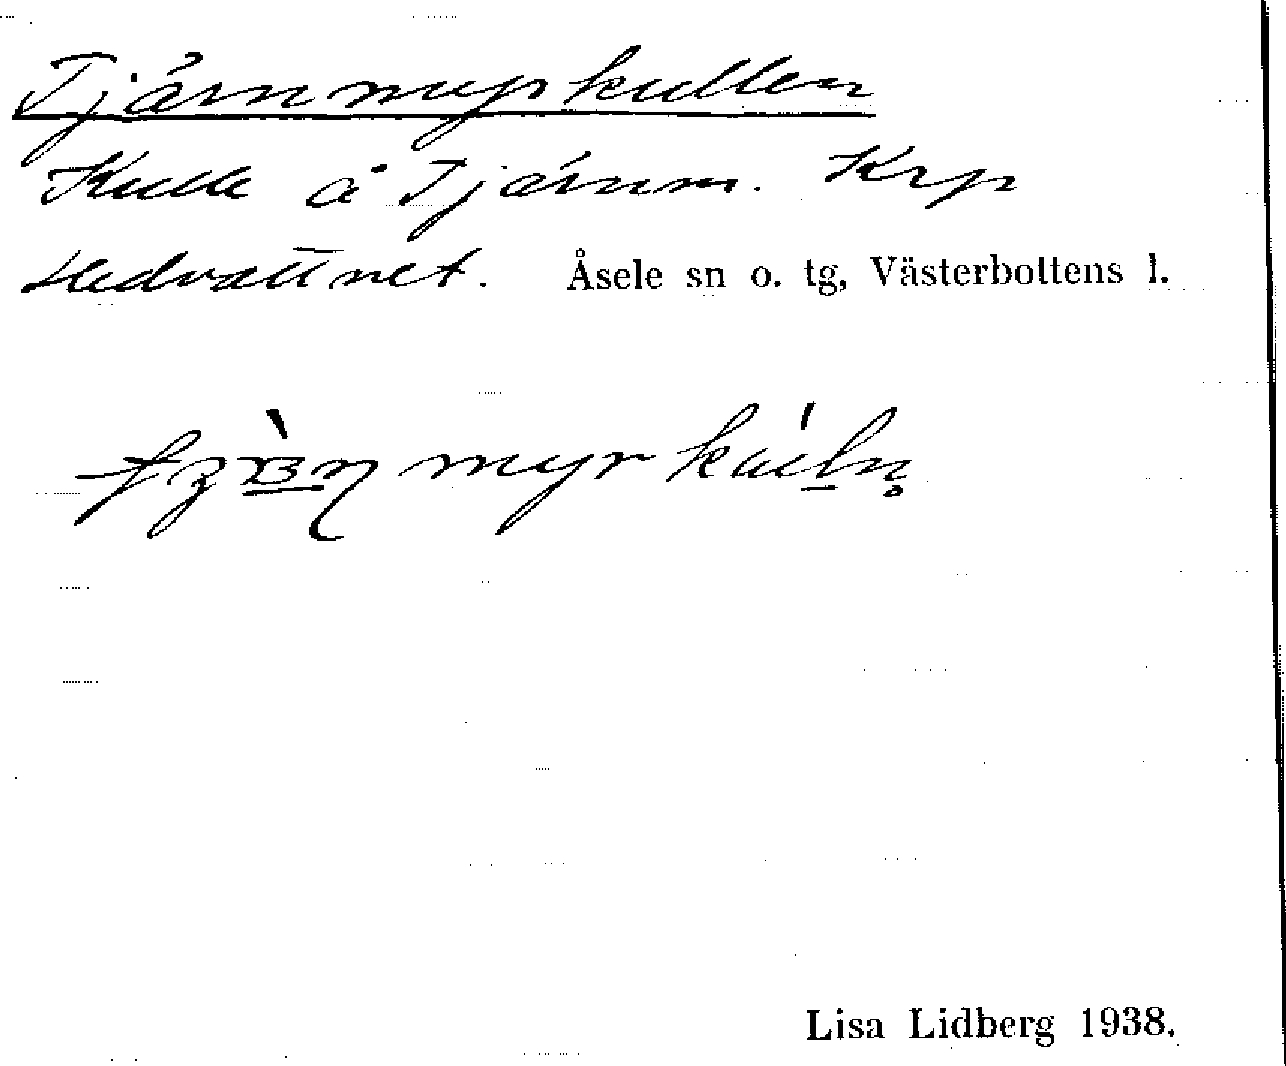 Tjärnmyrkullen
Kulle å Tjärnm. Krp
Hedvattnet. Åsele sn o. tg, Västerbottens l.
myr
Lisa Lidberg 1938.